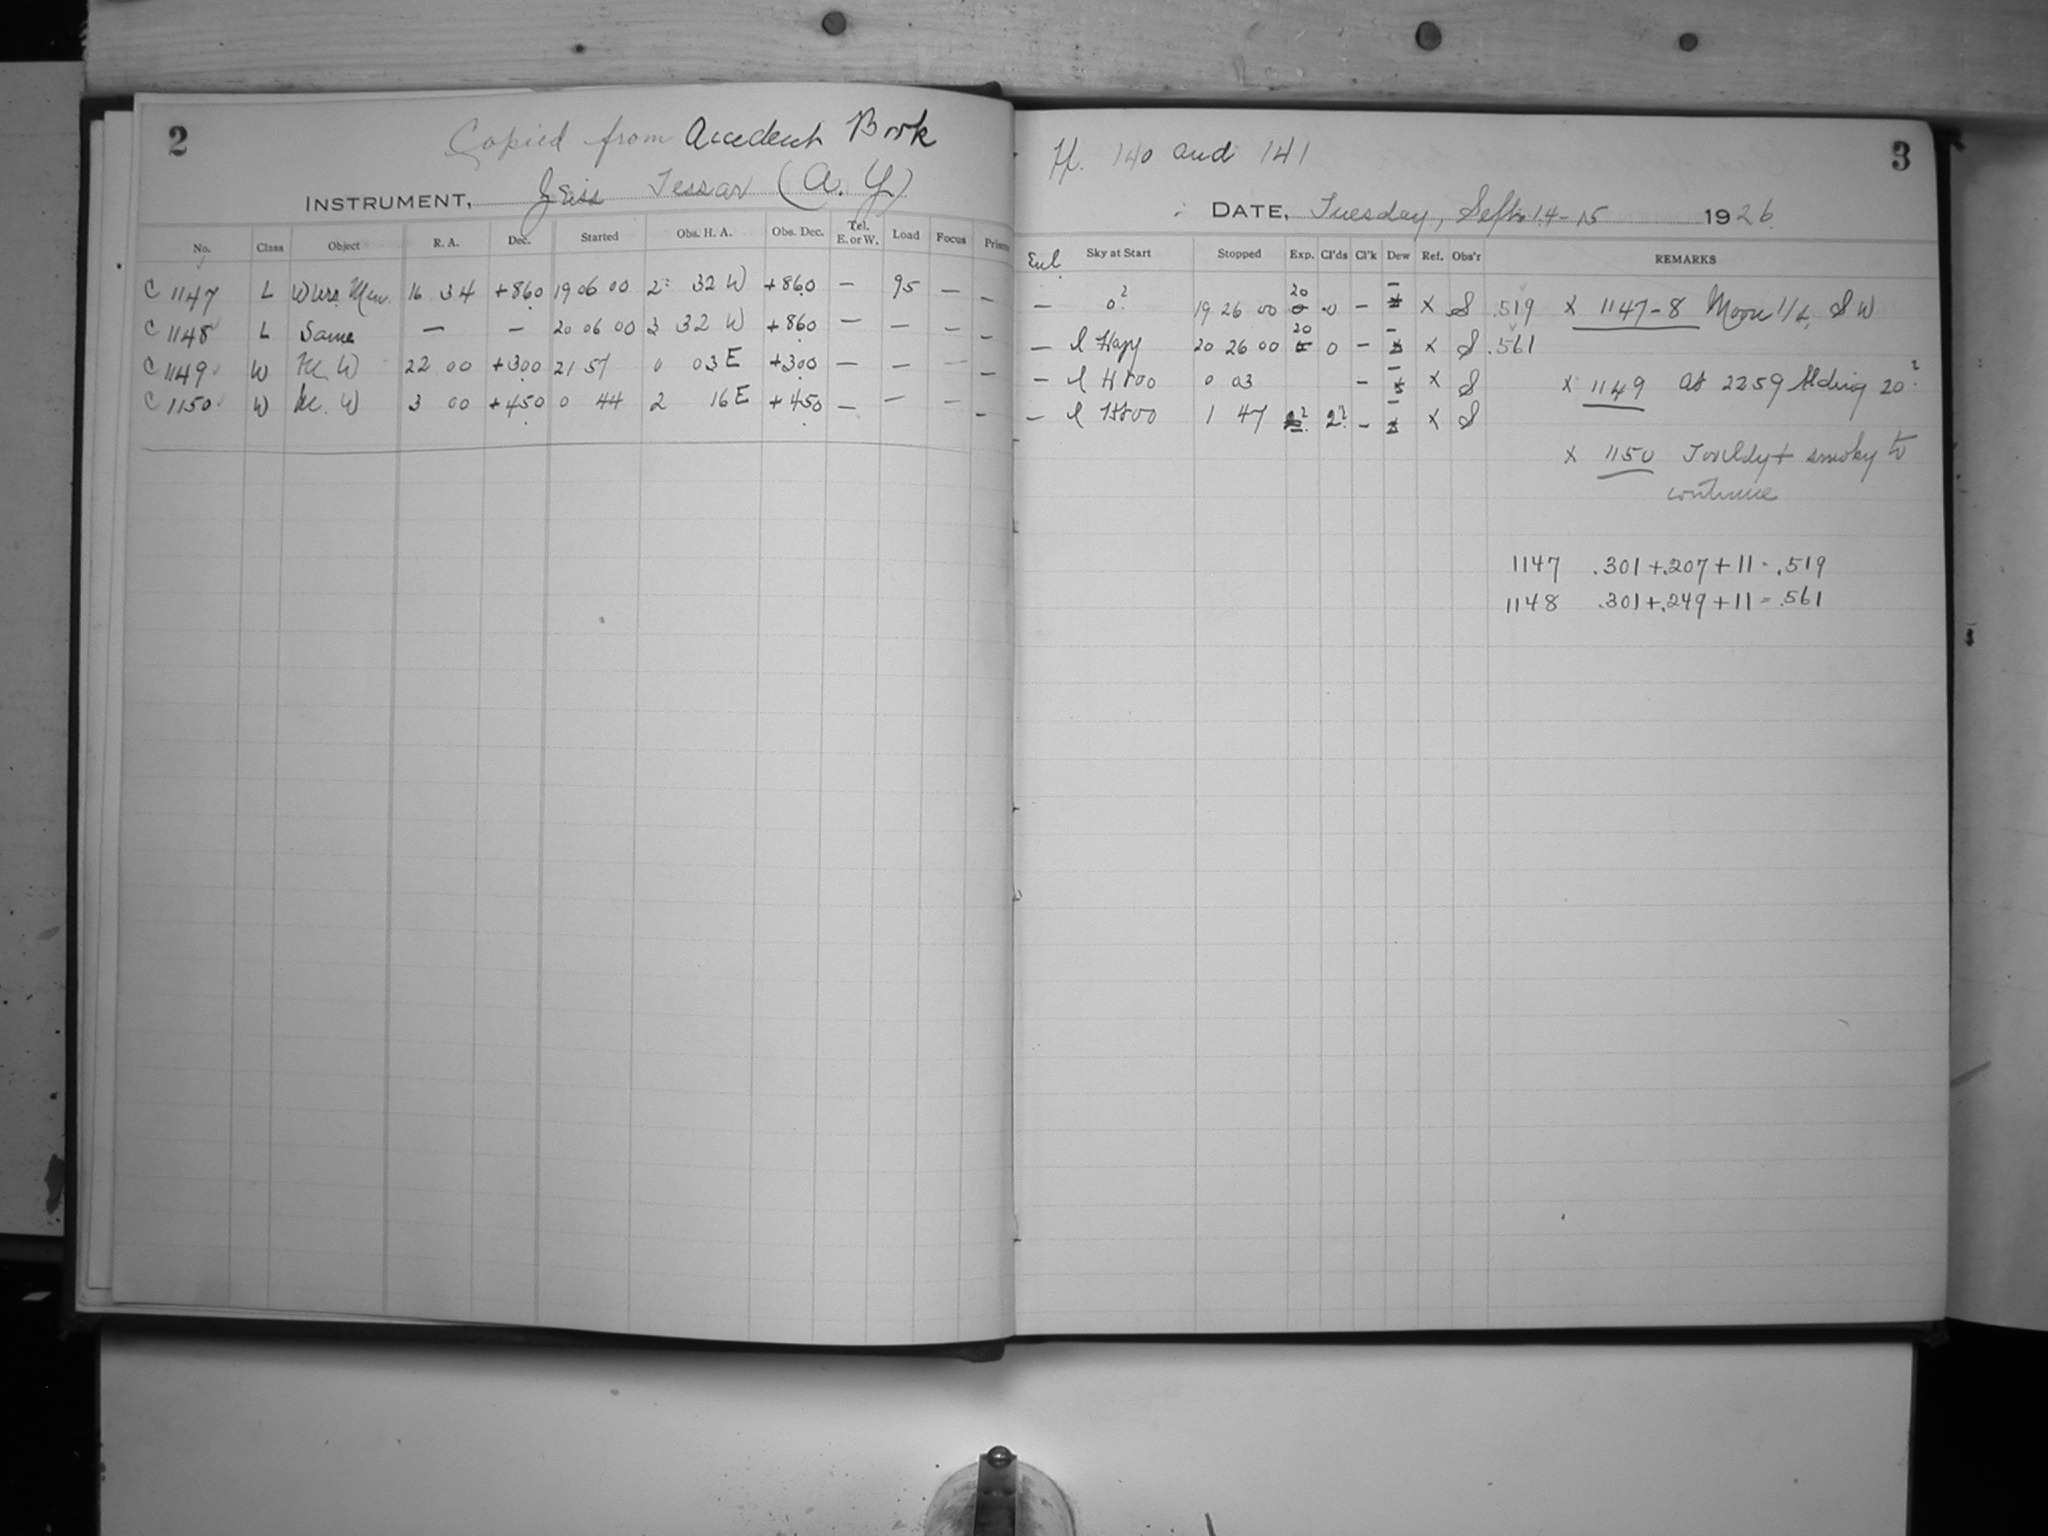 2
Copied from Accident Book
INSTRUMENT, Zeiss Tessar (A. Y)
No. Class Object R. A. Dec. Started Obs. H. A. Obs. Dec. Tel. E. or W. Load Focus Prism
C 1147 L Urs. Min. 16 34 +86.0 19 06 00 2 32 W +86.0 — 95 — —
C 1148 L Same — — 20 06 00 3 32 W +86.0 — — — —
C 1149 W W 22 00 +30.0 21 57 0 03 E +30.0 — — — —
C 1150 W W 3 00 +45.0 0 44 2 16 E +45.0 — — — —
pp. 140 and 141
3
DATE, Tuesday, Sept. 14-15 1926
Sky at Start Stopped Exp. Cl'ds Cl'k Dew Ref. Obs'r REMARKS
— 0? 19 26 00 20 0 — — X S .519 X 1147-8 Moon S W
— l Hazy 20 26 00 20 0 — — X S .561
— l 0 03 — — X S X 1149 at 2259 20?
— l 1 47 2? — — X S
X 1150 smoky to
continue
1147 .301+.207+11 = .519
1148 .301+.249+11 = .561